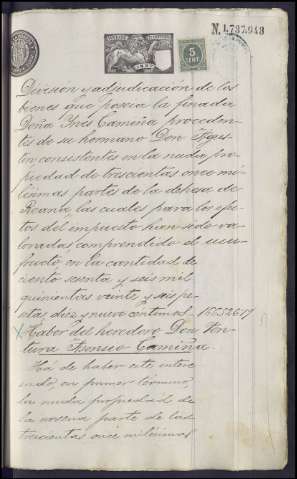 N. 1,737,943
5
CENT
Division y adjudicación de los
bienes que poseia la finada
Doña Ynés Camiña proceden-
tes de su hermano Don Agus-
tin consistentes en la nuda pro-
piedad de trescientas once mi-
lésimas partes de la dehesa de
las cuales para los efec-
tos del impuesto han sido va-
loradas comprendido el usu-
fructo en la cantidad de
ciento sesenta y seis mil
quinientas veinte y seis pe-
setas diez y nueve centimos 166.526.19
Haber del heredero Don Ven-
tura Camiña
Há de haber este intere-
sado, en primer término,
la nuda propiedad de
la novena parte de las
trescientas once milésimas